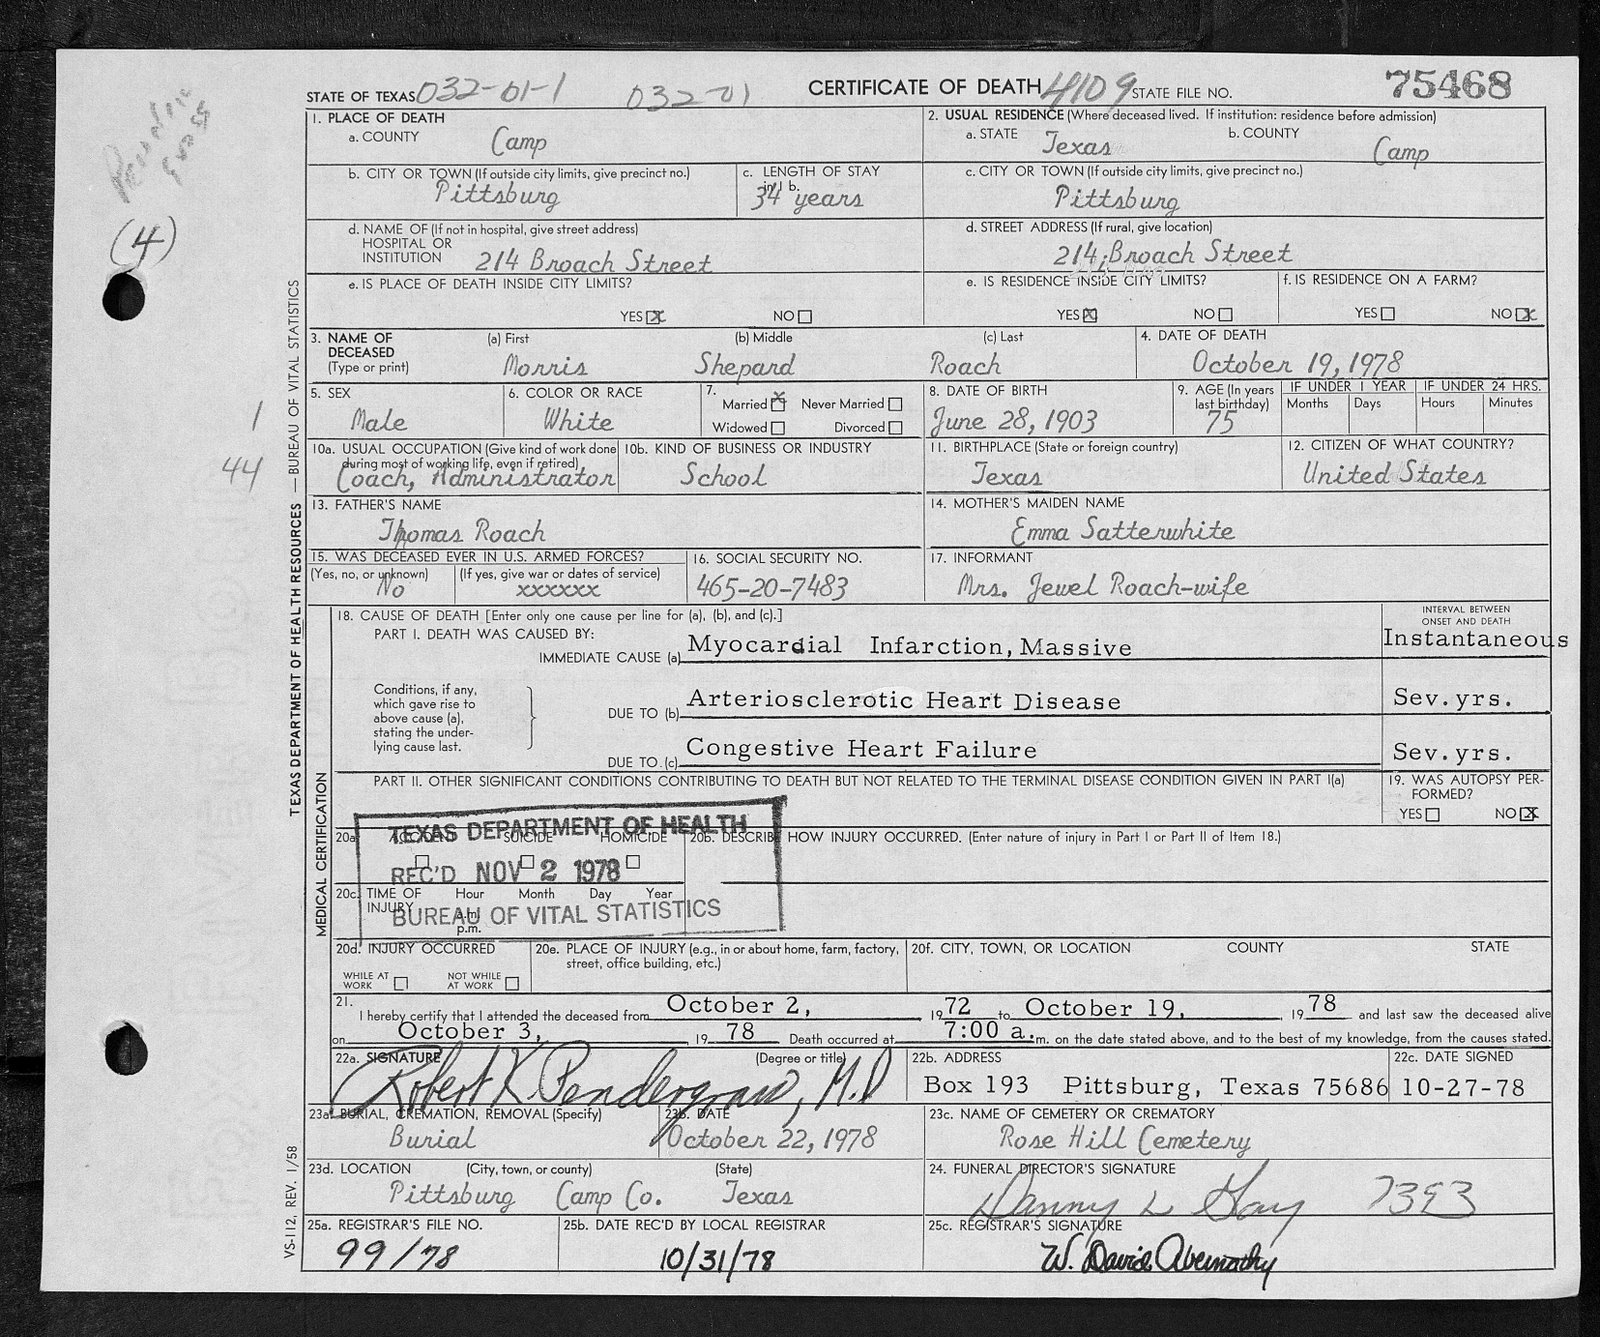 STATE OF TEXAS 032-01-1 032-01 CERTIFICATE OF DEATH 4109 STATE FILE NO. 75468
(4)
1
44
TEXAS DEPARTMENT OF HEALTH RESOURCES — BUREAU OF VITAL STATISTICS
VS-112, REV. 1/58
1. PLACE OF DEATH
a. COUNTY Camp
2. USUAL RESIDENCE (Where deceased lived. If institution: residence before admission)
a. STATE Texas b. COUNTY Camp
b. CITY OR TOWN (If outside city limits, give precinct no.)
Pittsburg
c. LENGTH OF STAY
in 1 b.
34 years
c. CITY OR TOWN (If outside city limits, give precinct no.)
Pittsburg
d. NAME OF (If not in hospital, give street address)
HOSPITAL OR
INSTITUTION 214 Broach Street
d. STREET ADDRESS (If rural, give location)
214 Broach Street
e. IS PLACE OF DEATH INSIDE CITY LIMITS?
YES x NO
e. IS RESIDENCE INSIDE CITY LIMITS?
YES x NO
f. IS RESIDENCE ON A FARM?
YES NO x
3. NAME OF
DECEASED
(Type or print)
(a) First (b) Middle (c) Last
Morris Shepard Roach
4. DATE OF DEATH
October 19, 1978
5. SEX
Male
6. COLOR OR RACE
White
7.
Married x Never Married
Widowed Divorced
8. DATE OF BIRTH
June 28, 1903
9. AGE (In years
last birthday)
75
IF UNDER 1 YEAR
Months Days
IF UNDER 24 HRS.
Hours Minutes
10a. USUAL OCCUPATION (Give kind of work done
during most of working life, even if retired)
Coach, Administrator
10b. KIND OF BUSINESS OR INDUSTRY
School
11. BIRTHPLACE (State or foreign country)
Texas
12. CITIZEN OF WHAT COUNTRY?
United States
13. FATHER'S NAME
Thomas Roach
14. MOTHER'S MAIDEN NAME
Emma Satterwhite
15. WAS DECEASED EVER IN U.S. ARMED FORCES?
(Yes, no, or unknown) (If yes, give war or dates of service)
No xxxxxx
16. SOCIAL SECURITY NO.
465-20-7483
17. INFORMANT
Mrs. Jewel Roach-wife
MEDICAL CERTIFICATION
18. CAUSE OF DEATH [Enter only one cause per line for (a), (b), and (c).]
INTERVAL BETWEEN
ONSET AND DEATH
PART I. DEATH WAS CAUSED BY:
IMMEDIATE CAUSE (a) Myocardial Infarction, Massive Instantaneous
Conditions, if any,
which gave rise to
above cause (a),
stating the under-
lying cause last.
DUE TO (b) Arteriosclerotic Heart Disease Sev. yrs.
DUE TO (c) Congestive Heart Failure Sev. yrs.
PART II. OTHER SIGNIFICANT CONDITIONS CONTRIBUTING TO DEATH BUT NOT RELATED TO THE TERMINAL DISEASE CONDITION GIVEN IN PART I(a)
19. WAS AUTOPSY PER-
FORMED?
YES NO x
20a. ACCIDENT SUICIDE HOMICIDE
20b. DESCRIBE HOW INJURY OCCURRED. (Enter nature of injury in Part I or Part II of Item 18.)
TEXAS DEPARTMENT OF HEALTH
REC'D NOV 2 1978
BUREAU OF VITAL STATISTICS
20c. TIME OF
INJURY
Hour Month Day Year
a.m.
p.m.
20d. INJURY OCCURRED
WHILE AT
WORK
NOT WHILE
AT WORK
20e. PLACE OF INJURY (e.g., in or about home, farm, factory,
street, office building, etc.)
20f. CITY, TOWN, OR LOCATION COUNTY STATE
21.
I hereby certify that I attended the deceased from October 2, 19 72 to October 19, 19 78 and last saw the deceased alive
on October 3, 19 78 Death occurred at 7:00 a. m. on the date stated above, and to the best of my knowledge, from the causes stated.
22a. SIGNATURE (Degree or title)
Robert K Pendergrass, M.D
22b. ADDRESS
Box 193 Pittsburg, Texas 75686
22c. DATE SIGNED
10-27-78
23a. BURIAL, CREMATION, REMOVAL (Specify)
Burial
23b. DATE
October 22, 1978
23c. NAME OF CEMETERY OR CREMATORY
Rose Hill Cemetery
23d. LOCATION (City, town, or county) (State)
Pittsburg Camp Co. Texas
24. FUNERAL DIRECTOR'S SIGNATURE
Danny L Gay 7393
25a. REGISTRAR'S FILE NO.
99/78
25b. DATE REC'D BY LOCAL REGISTRAR
10/31/78
25c. REGISTRAR'S SIGNATURE
W. David Abernathy